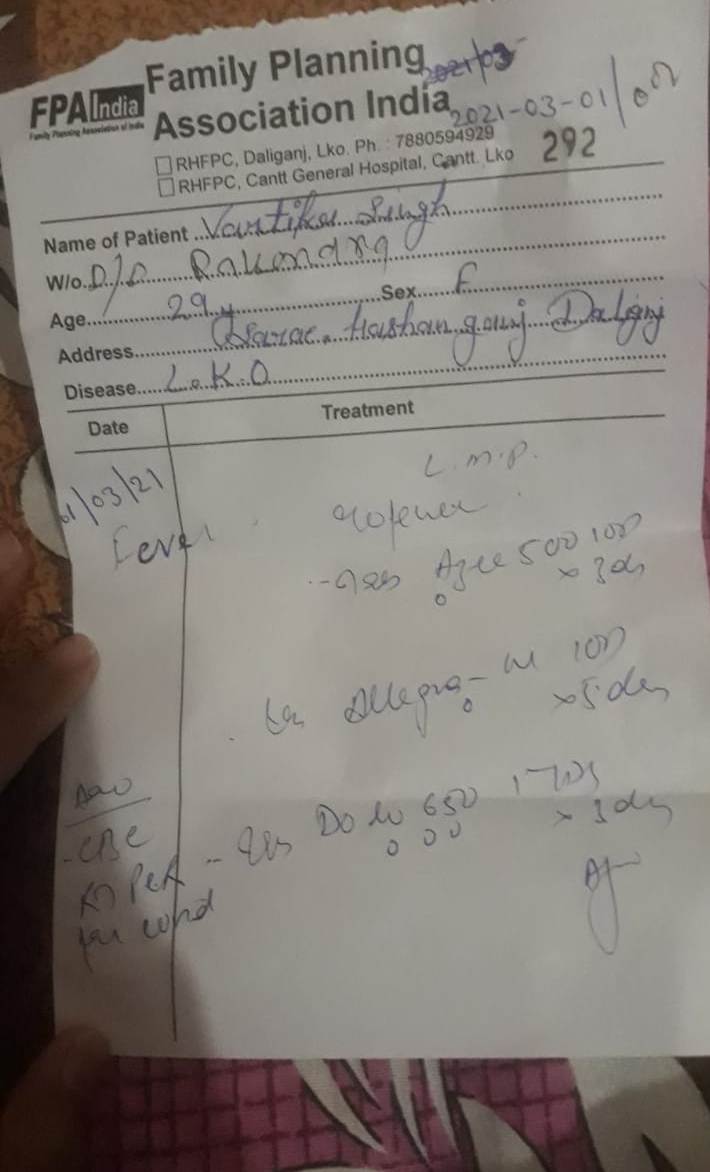 FPA India
Family Planning Association of India
Family Planning
Association India
2021/03
2021-03-01/002
RHFPC, Daliganj, Lko. Ph. : 7880594929
RHFPC, Cantt General Hospital, Cantt. Lko
292
Name of Patient Vartika Singh
W/o. D/O
Age 29 y Sex F
Address Hashan gunj Daliganj
Disease L.K.O
Date Treatment
01/03/21
L.M.P.
Fever
Azee 500 1OD
x 3 d
Allegra-M 1OD
x 5 d
Adv
- CBC
Dolo 650 1 TDS
x 3 d
for covid